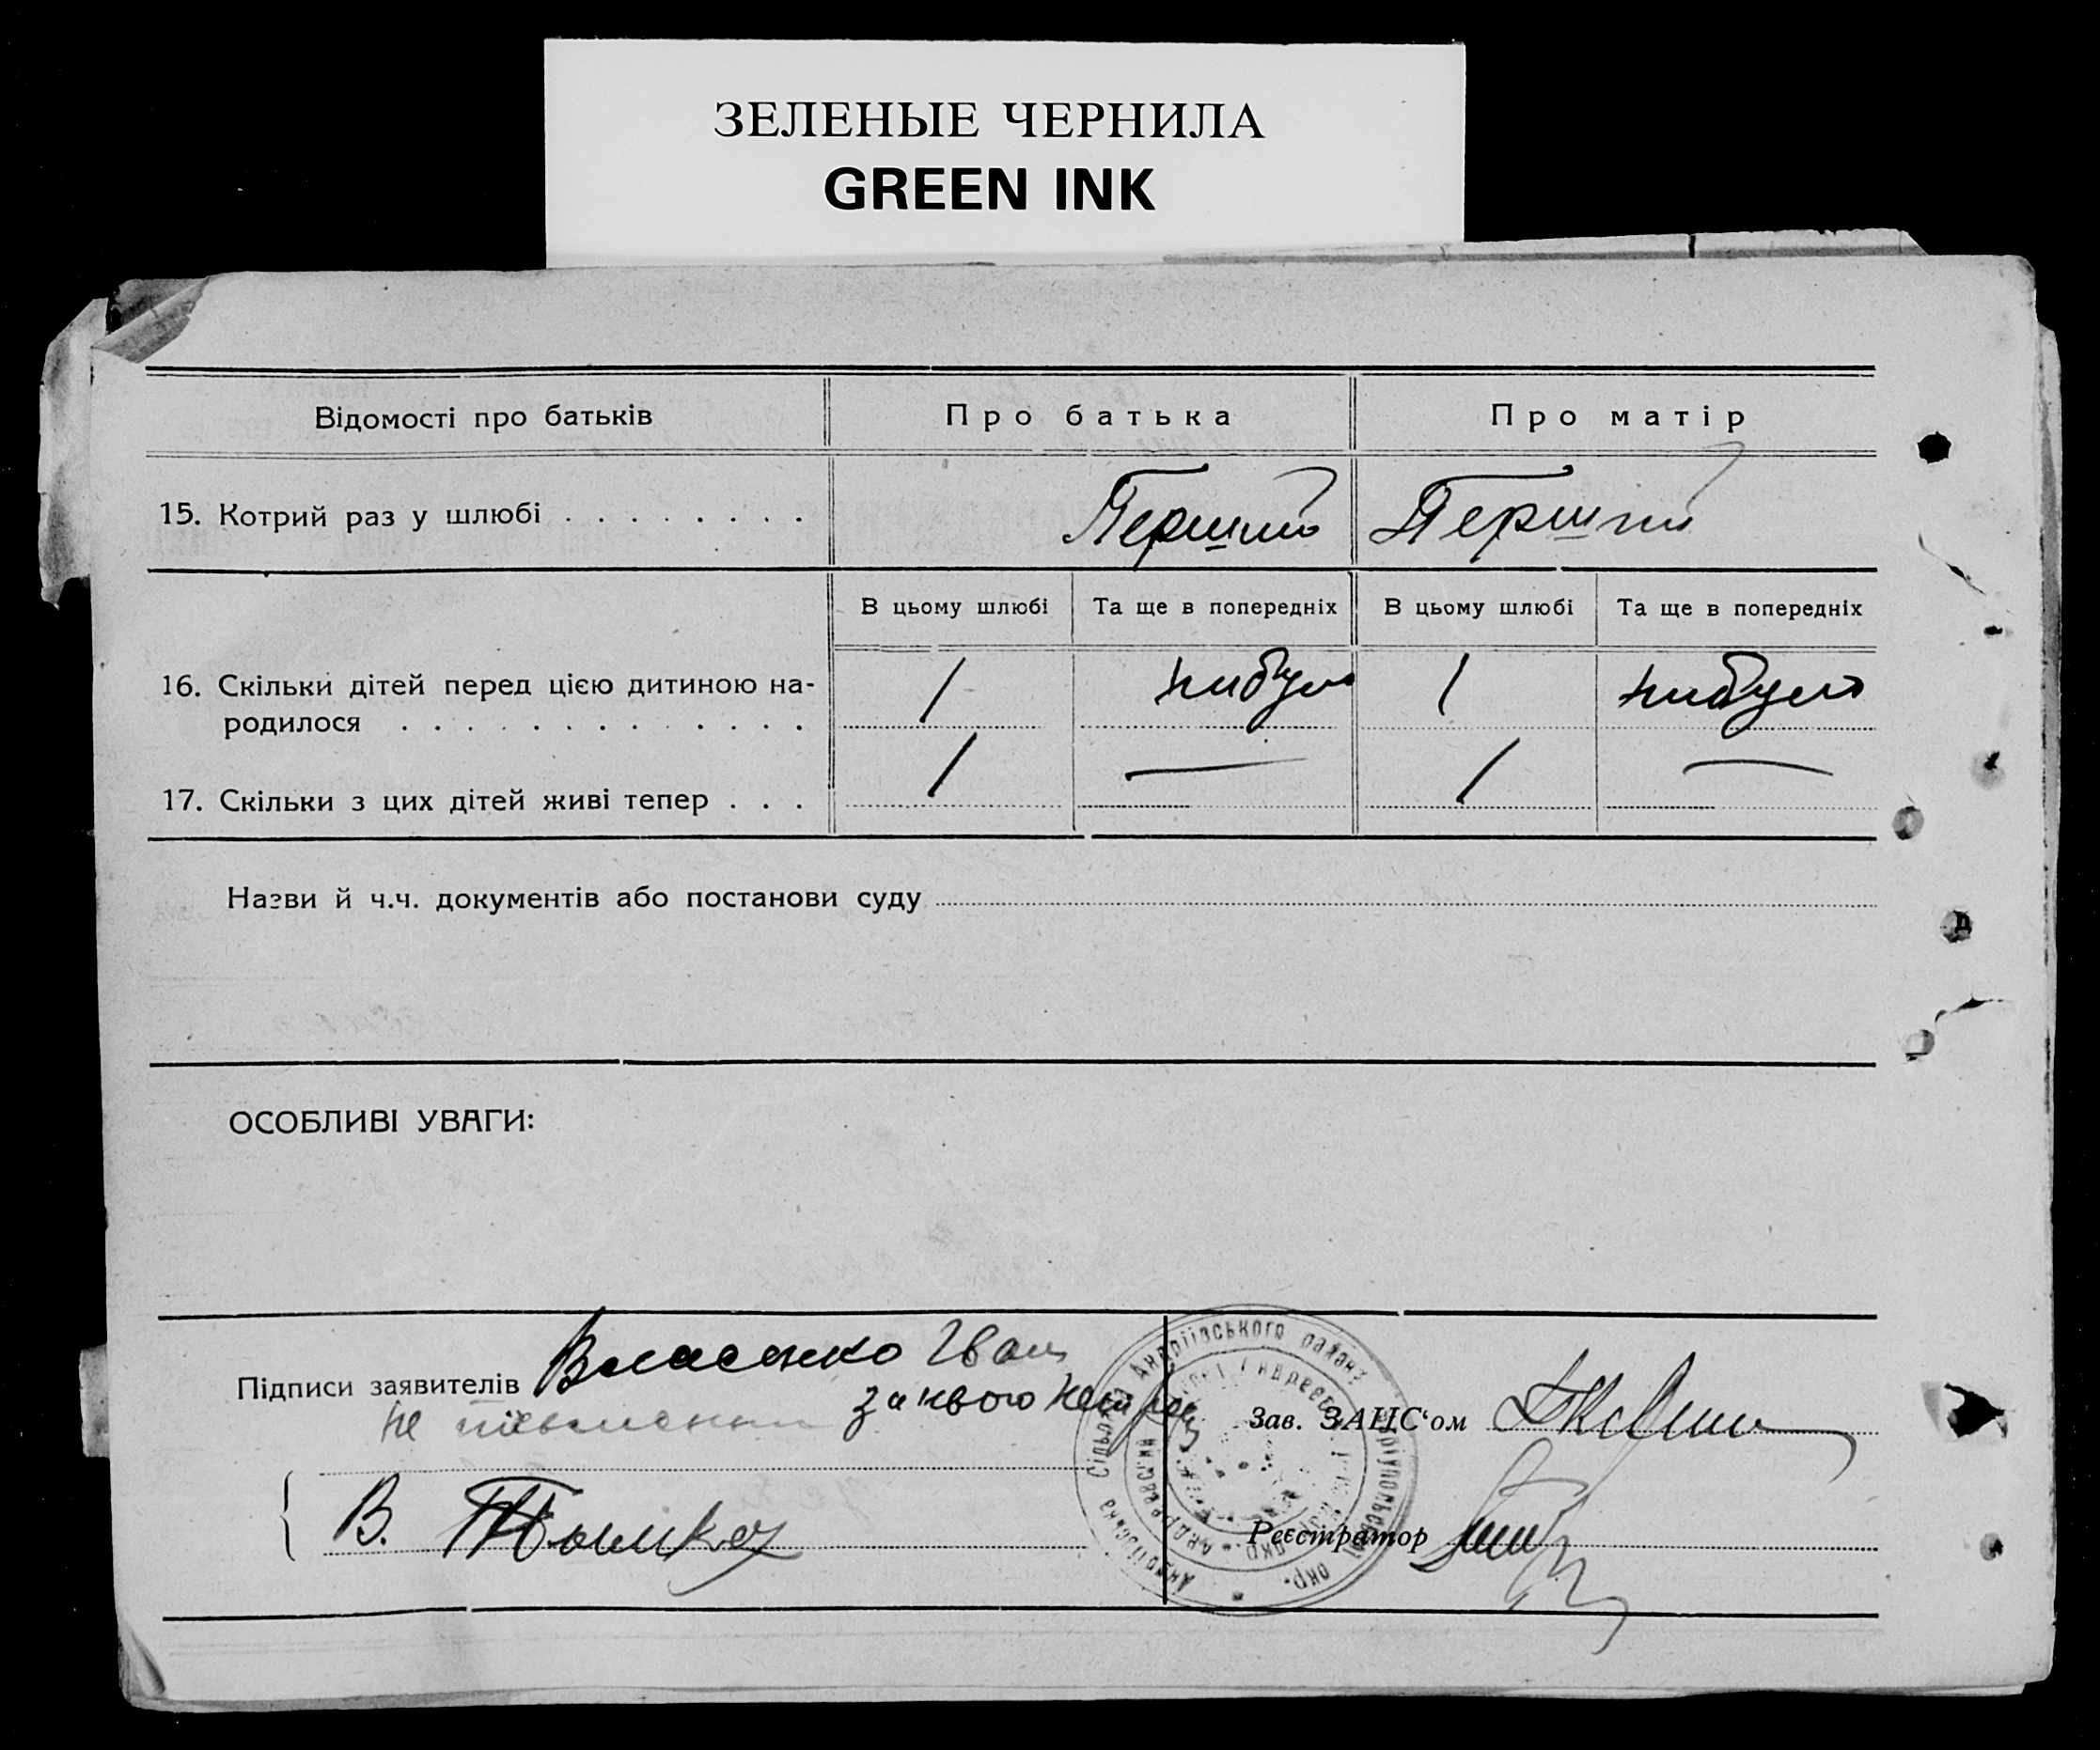 ЗЕЛЕНЫЕ ЧЕРНИЛА
GREEN INK
Відомості про батьків
Про батька
Про матір
15. Котрий раз у шлюбі
Перший
Перший
В цьому шлюбі
Та ще в попередніх
В цьому шлюбі
Та ще в попередніх
16. Скільки дітей перед цією дитиною на-
родилося
1
нибуло
1
нибуло
17. Скільки з цих дітей живі тепер
1
—
1
—
Назви й ч.ч. документів або постанови суду
ОСОБЛИВІ УВАГИ:
Підписи заявителів
Власенко Іван
не письменни
за нього
В.
Зав. ЗАЦС‘ом
Реєстратор
Андріївська Сільрада Андріївського району Маріупольської окр.